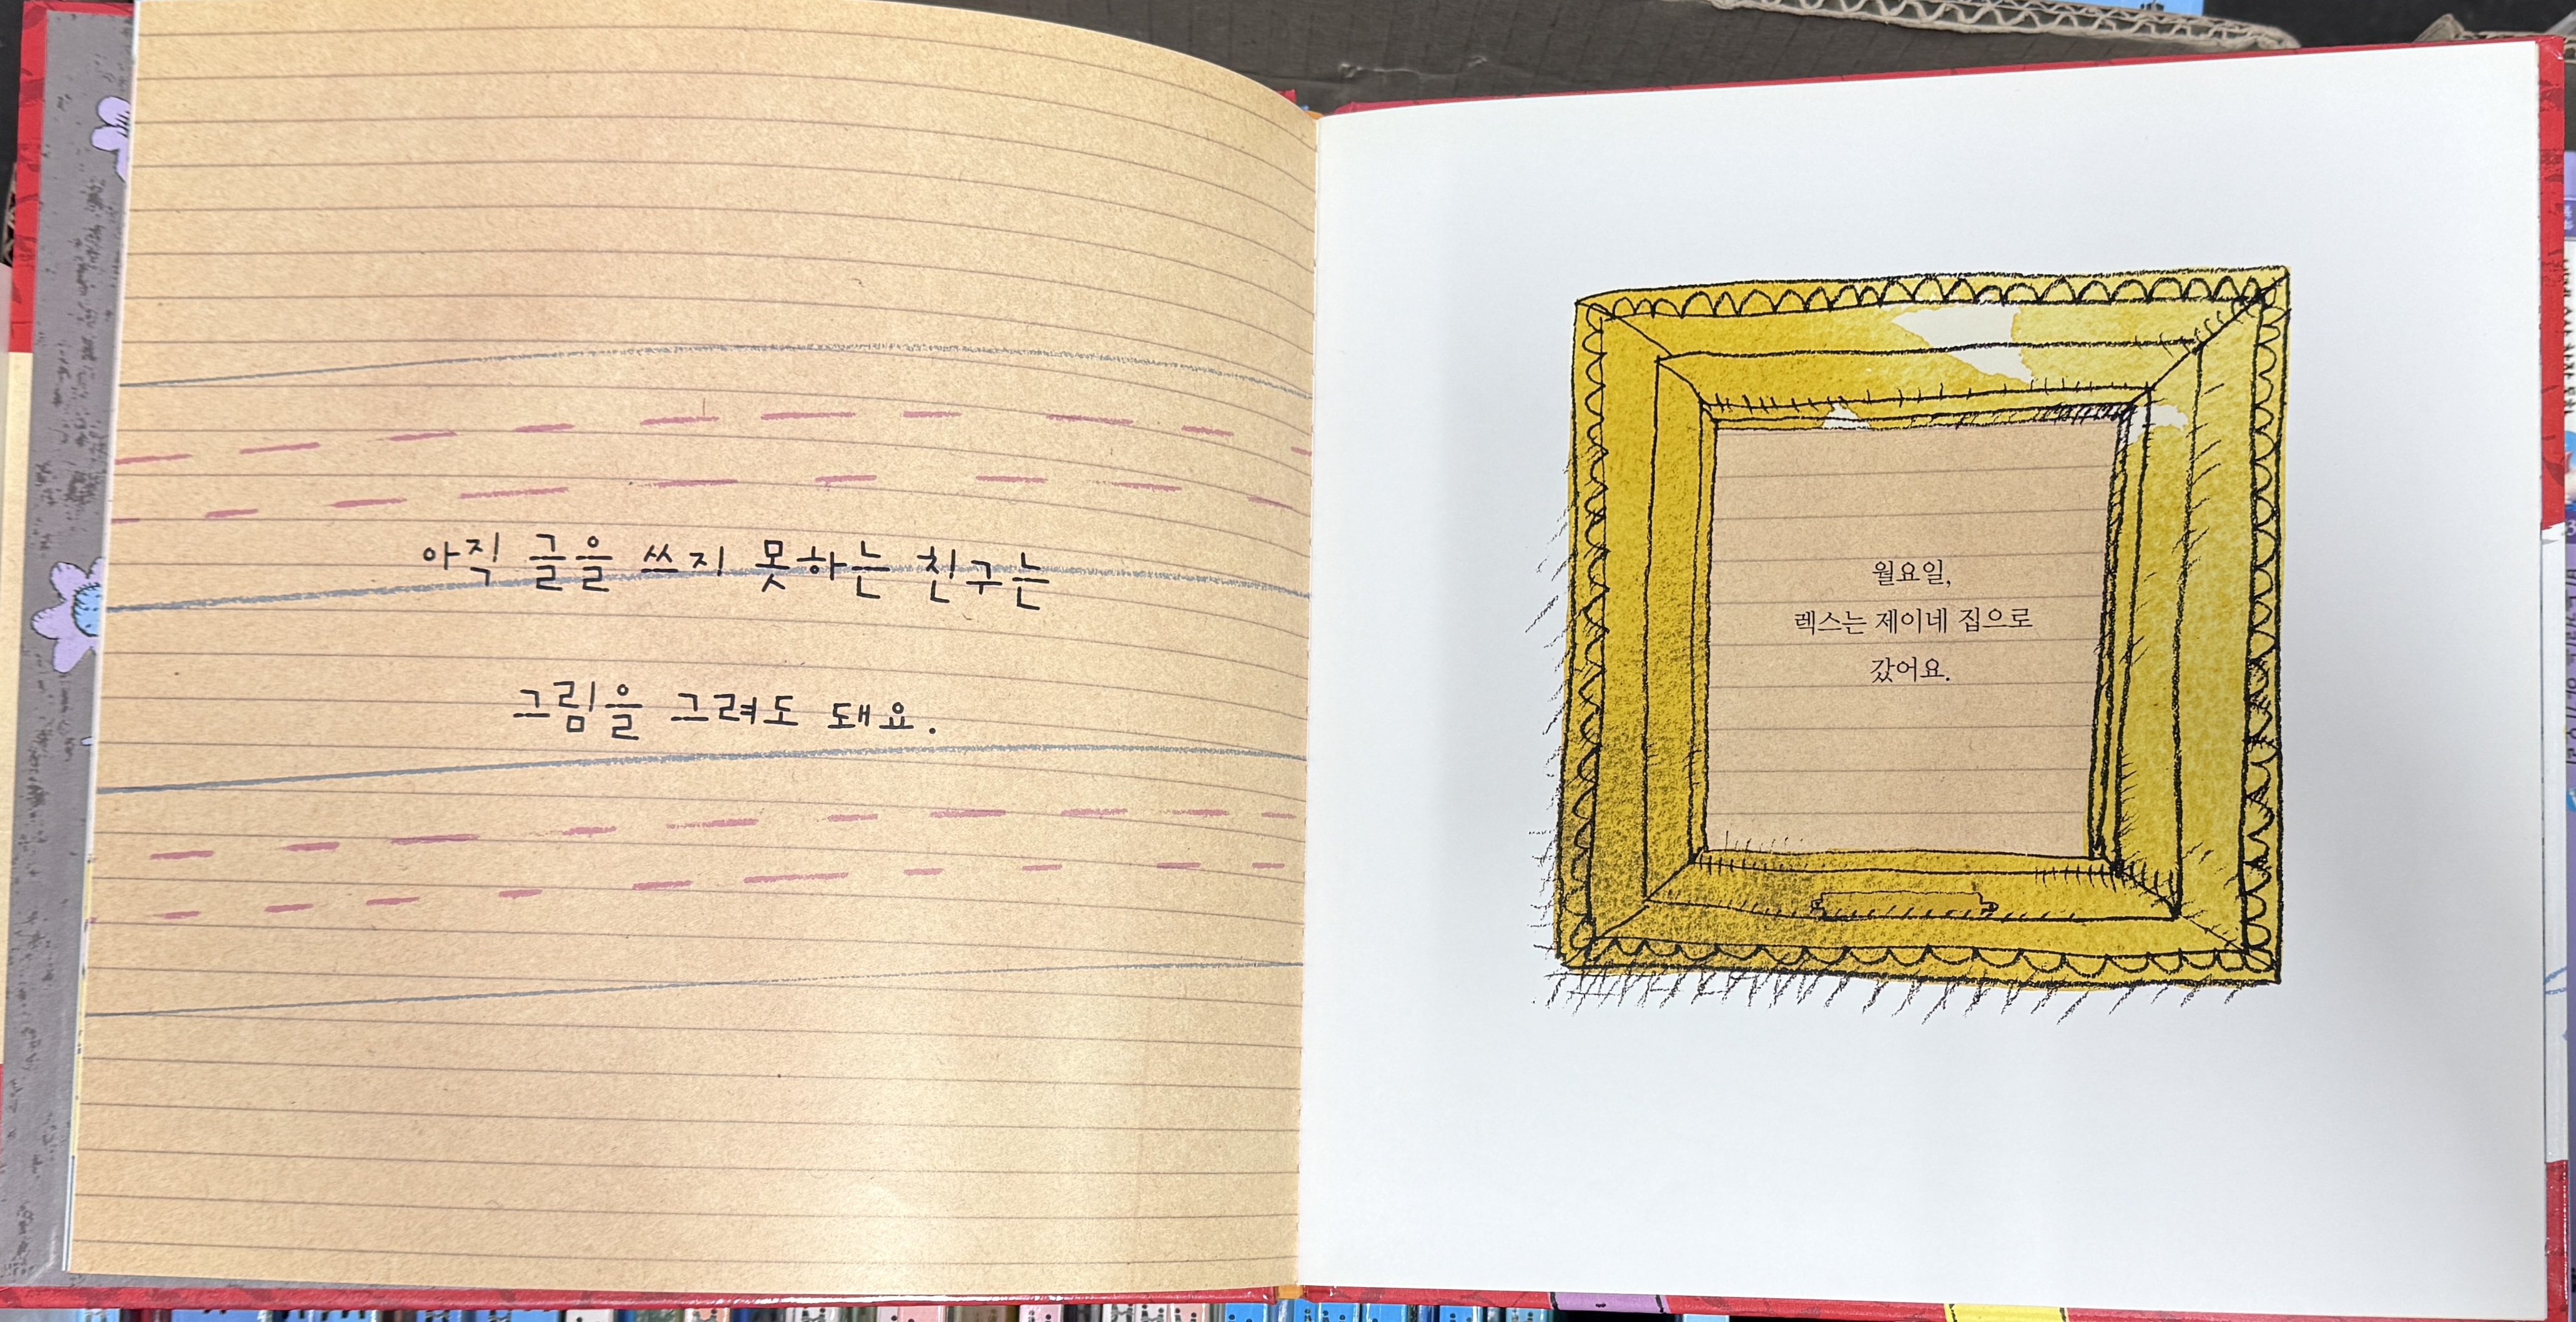 아직 글을 쓰지 못하는 친구는
그림을 그려도 돼요.
월요일,
렉스는 제이네 집으로
갔어요.